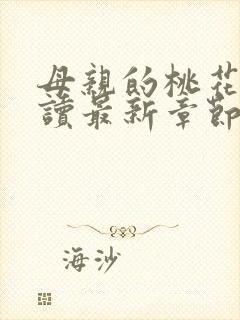 母親的桃花
讀最新章節
海沙